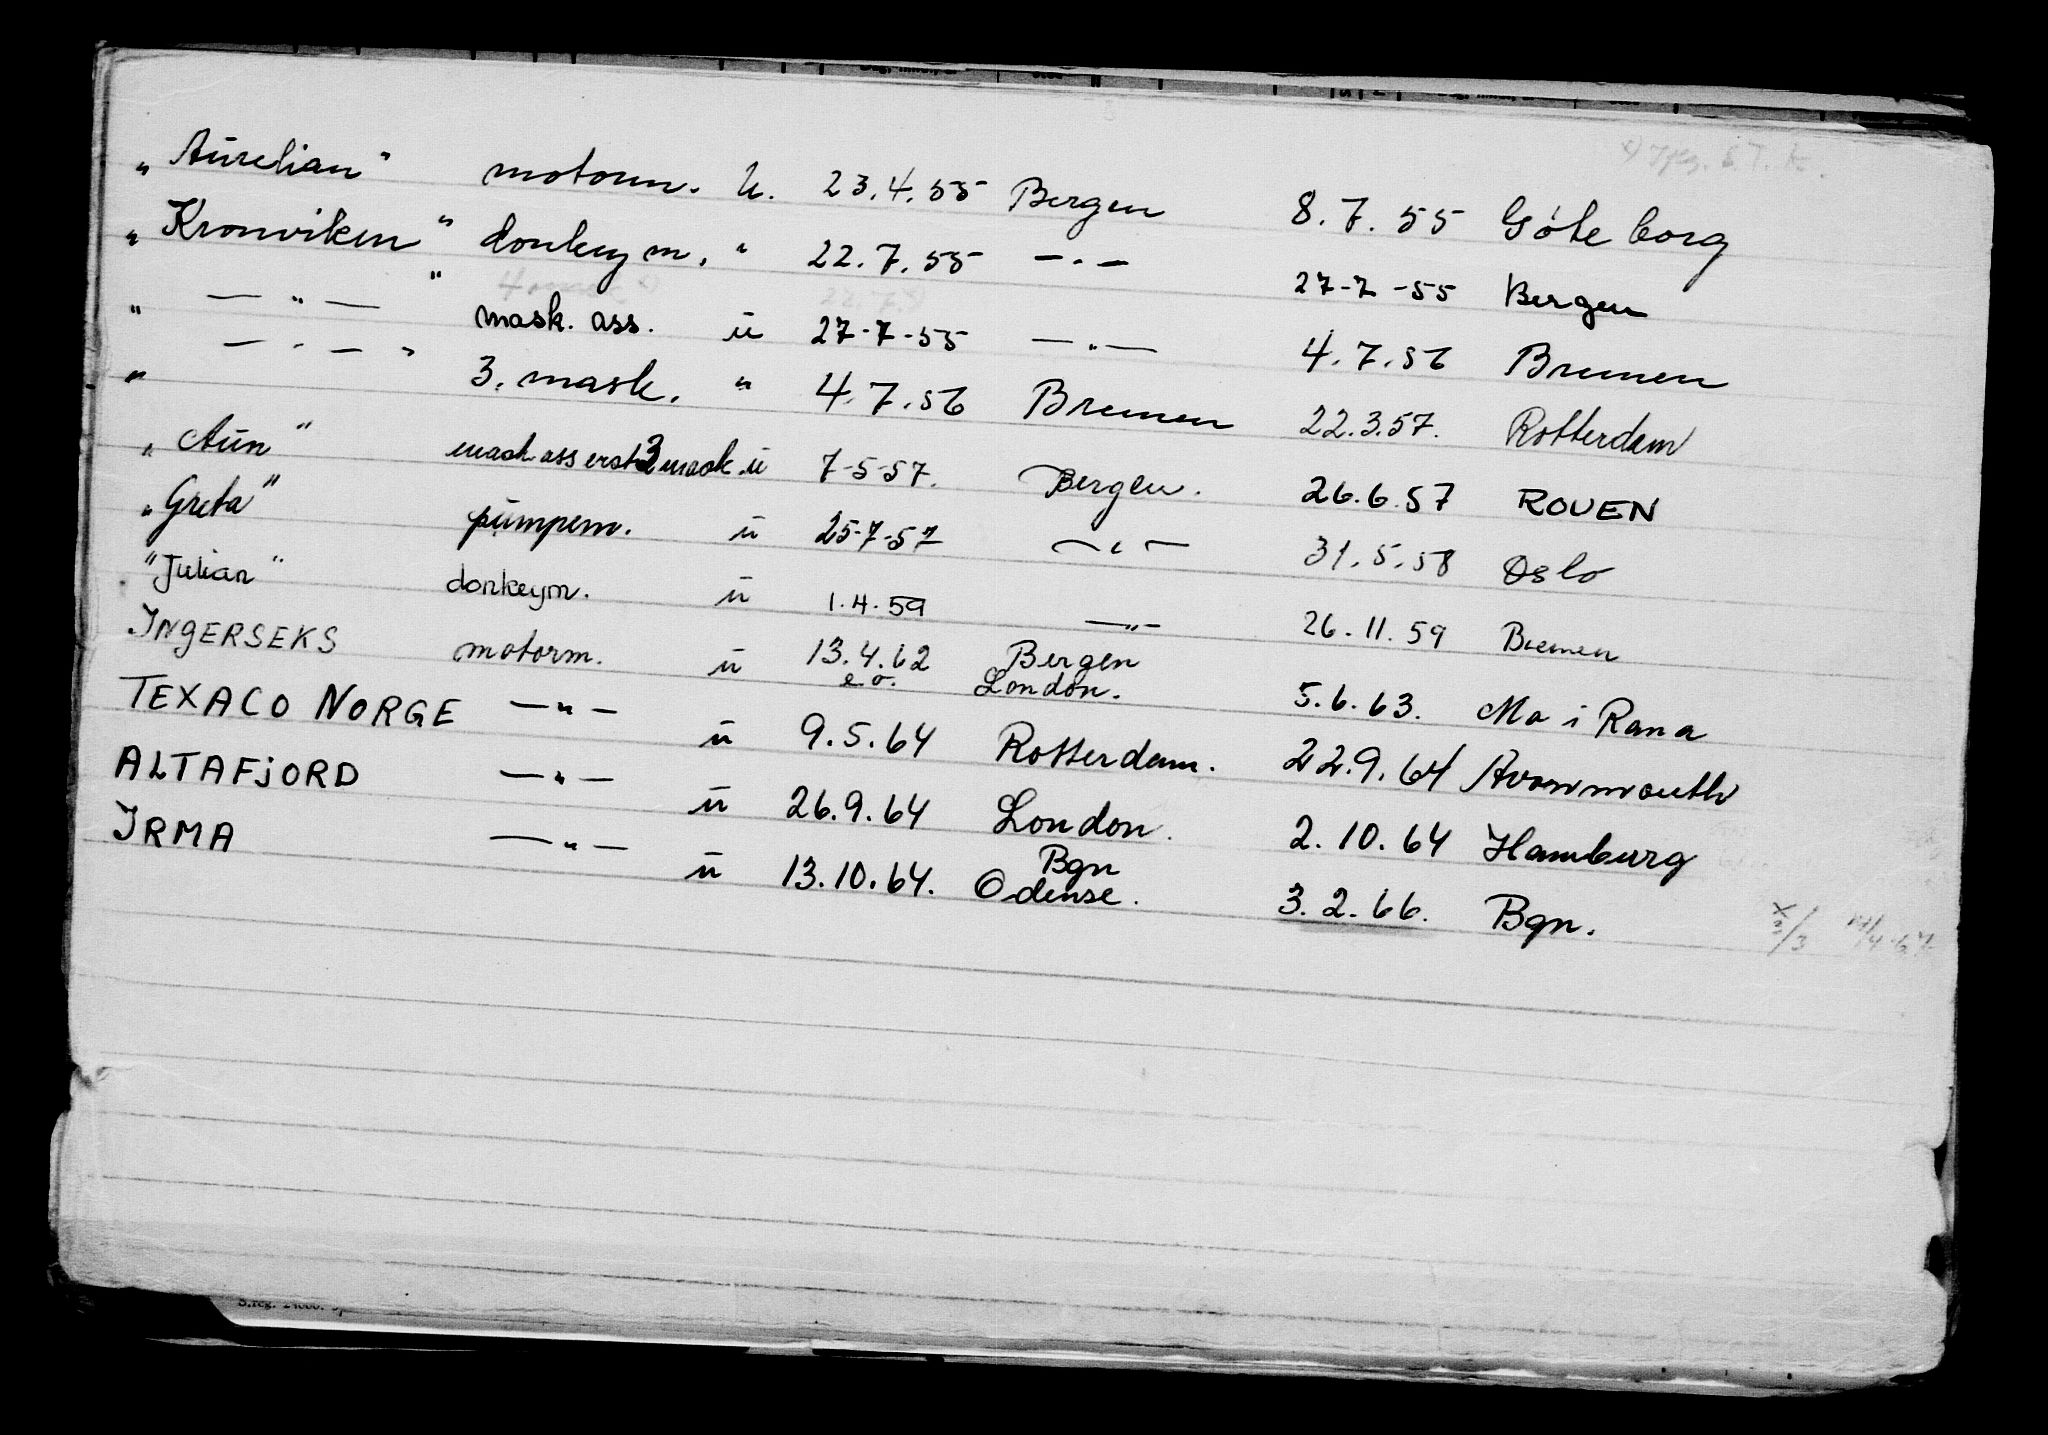 „Aurelian" motorm. u. 23.4.55 Bergen 8.7.55 Göteborg
„Kronviken" donkeym. " 22.7.55 — " — 27-7-55 Bergen
" — " — " mask. ass. u 27-7-55 — " — 4.7.56 Bremen
" — " — " 3. mask. " 4.7.56 Bremen 22.3.57. Rotterdam
„Aun" mask ass erst 3 mask. u 7-5-57. Bergen. 26.6.57 ROUEN
„Greta" pumpem. u 25-7-57 — " — 31.5.58 Oslo
"Julian" donkeym. u 1.4.59 — " — 26.11.59 Bremen
INGERSEKS motorm. u 13.4.62 Bergen
e.o. London. 5.6.63. Mo i Rana
TEXACO NORGE — " — u 9.5.64 Rotterdam. 22.9.64 Avonmouth
ALTAFJORD — " — u 26.9.64 London. 2.10.64 Hamburg
IRMA — " — u 13.10.64. Bgn
Odense. 3.2.66. Bgn.